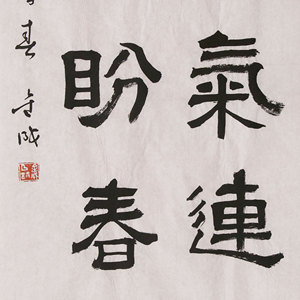 氣連
盼春
春